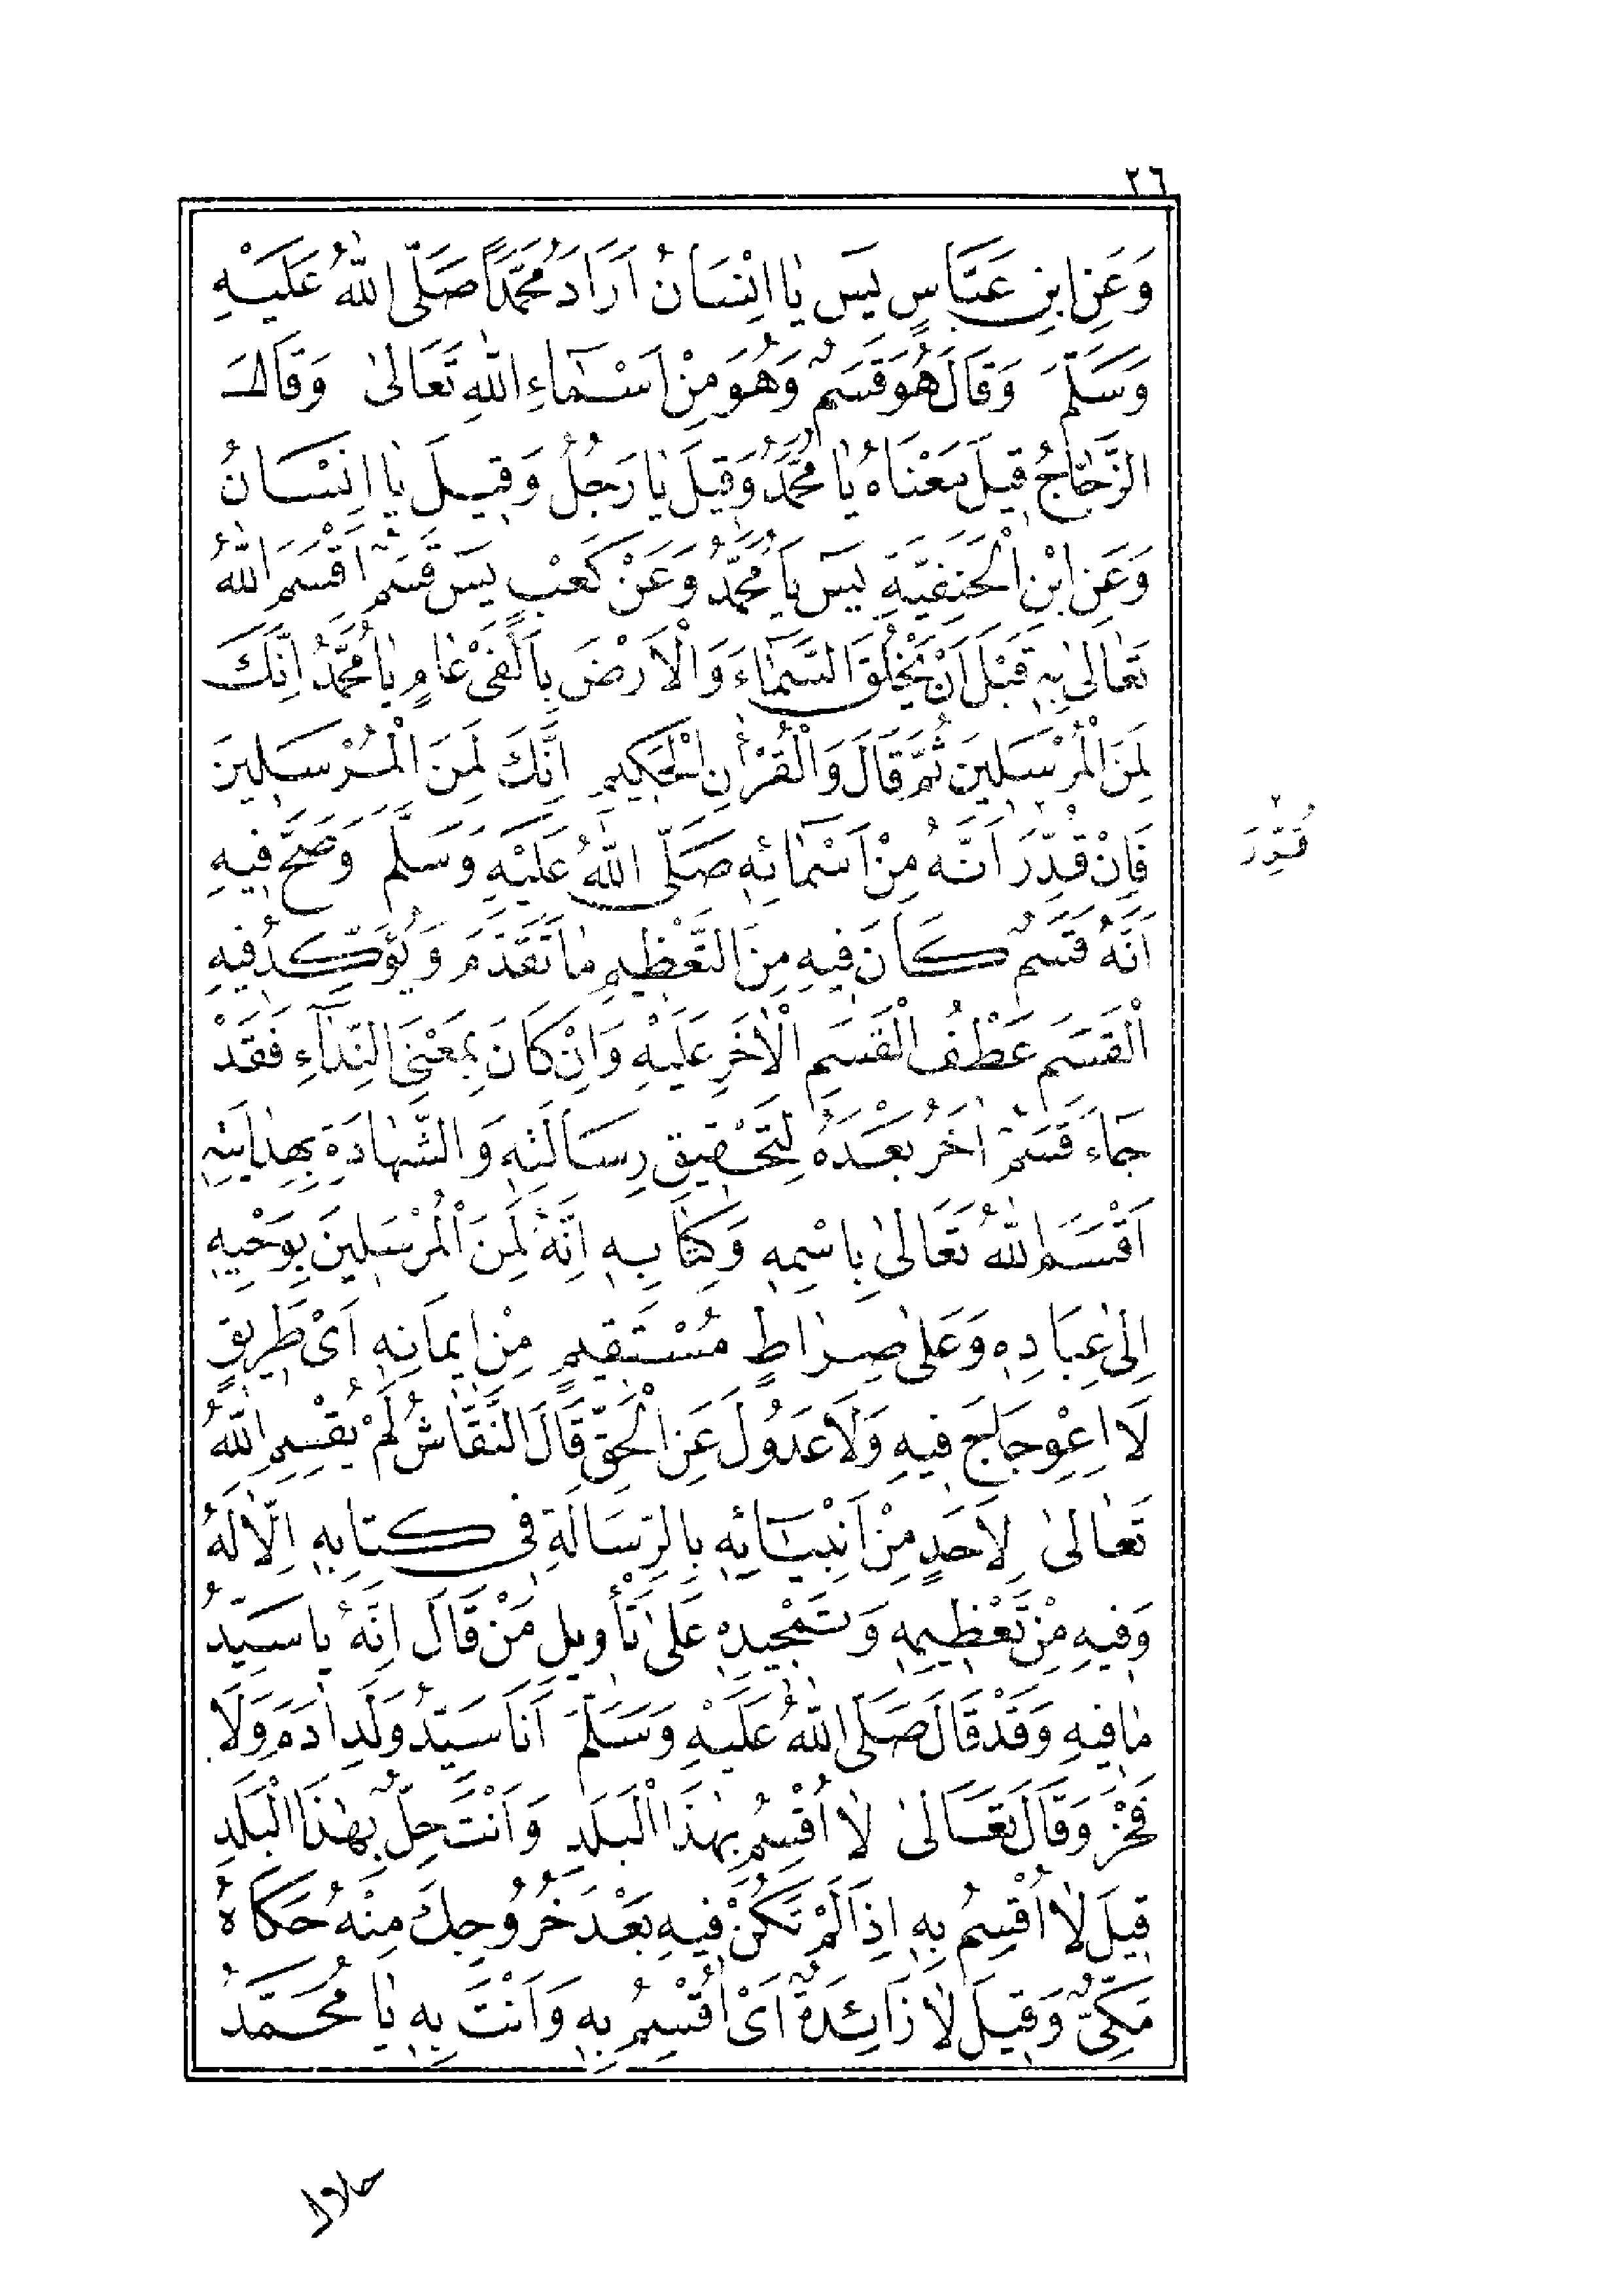 ٢٦
وَعَنِ ابْنِ عَبَّاسٍ يس يَا اِنْسَانُ اَرَادَ مُحَمَّدًا صَلَّى اللّٰهُ عَلَيْهِ
وَسَلَّمَ وَقَالَ هُوَ قَسَمٌ وَهُوَ مِنْ اَسْمَاءِ اللّٰهِ تَعَالٰى وَقَالَ
الزَّجَّاجُ قِيلَ مَعْنَاهُ يَا مُحَمَّدُ وَقِيلَ يَا رَجُلُ وَقِيلَ يَا اِنْسَانُ
وَعَنِ ابْنِ الْحَنَفِيَّةِ يس يَا مُحَمَّدُ وَعَنْ كَعْبٍ يس قَسَمٌ اَقْسَمَ اللّٰهُ
تَعَالٰى بِهِ قَبْلَ اَنْ يَخْلُقَ السَّمَاءَ وَالْاَرْضَ بِاَلْفَىْ عَامٍ يَا مُحَمَّدُ اِنَّكَ
لَمِنَ الْمُرْسَلِينَ ثُمَّ قَالَ وَالْقُرْاٰنِ الْحَكِيمِ اِنَّكَ لَمِنَ الْمُرْسَلِينَ
فَاِنْ قُدِّرَ اَنَّهُ مِنْ اَسْمَائِهِ صَلَّى اللّٰهُ عَلَيْهِ وَسَلَّمَ وَصَحَّ فِيهِ
٢ قُرِّرَ
اَنَّهُ قَسَمٌ كَانَ فِيهِ مِنَ التَّعْظِيمِ مَا تَقَدَّمَ وَيُؤَكِّدُ فِيهِ
الْقَسَمَ عَطْفُ الْقَسَمِ الْاٰخَرِ عَلَيْهِ وَاِنْ كَانَ بِمَعْنَى النِّدَاءِ فَقَدْ
جَاءَ قَسَمٌ اٰخَرُ بَعْدَهُ لِتَحْقِيقِ رِسَالَتِهِ وَالشَّهَادَةِ بِهِدَايَتِهِ
اَقْسَمَ اللّٰهُ تَعَالٰى بِاسْمِهِ وَكِتَابِهِ اِنَّهُ لَمِنَ الْمُرْسَلِينَ بِوَحْيِهِ
اِلٰى عِبَادِهِ وَعَلٰى صِرَاطٍ مُسْتَقِيمٍ مِنْ اِيمَانِهِ اَىْ طَرِيقٍ
لَا اِعْوِجَاجَ فِيهِ وَلَا عُدُولَ عَنِ الْحَقِّ قَالَ النَّقَّاشُ لَمْ يُقْسِمِ اللّٰهُ
تَعَالٰى لِاَحَدٍ مِنْ اَنْبِيَائِهِ بِالرِّسَالَةِ فِى كِتَابِهِ اِلَّا لَهُ
وَفِيهِ مِنْ تَعْظِيمِهِ وَتَمْجِيدِهِ عَلٰى تَأْوِيلِ مَنْ قَالَ اِنَّهُ يَا سَيِّدُ
مَا فِيهِ وَقَدْ قَالَ صَلَّى اللّٰهُ عَلَيْهِ وَسَلَّمَ اَنَا سَيِّدُ وَلَدِ اٰدَمَ وَلَا
فَخْرَ وَقَالَ تَعَالٰى لَا اُقْسِمُ بِهٰذَا الْبَلَدِ وَاَنْتَ حِلٌّ بِهٰذَا الْبَلَدِ
قِيلَ لَا اُقْسِمُ بِهِ اِذَا لَمْ تَكُنْ فِيهِ بَعْدَ خُرُوجِكَ مِنْهُ حَكَاهُ
مَكِّىٌّ وَقِيلَ لَا زَائِدَةٌ اَىْ اُقْسِمُ بِهِ وَاَنْتَ بِهِ يَا مُحَمَّدُ
حلال